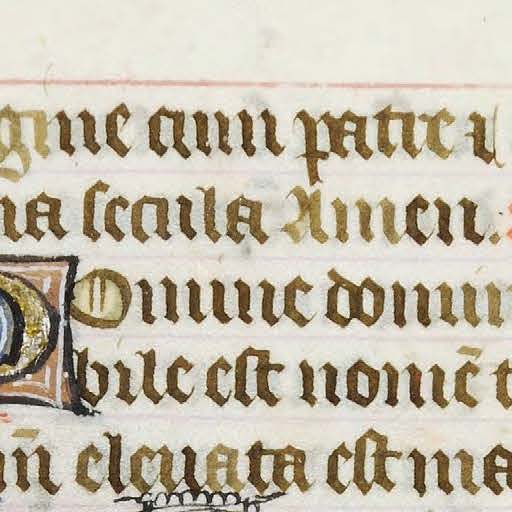 gine cum patre
secula Amen.
Domine domin
bile est nomē
eleuata est ma